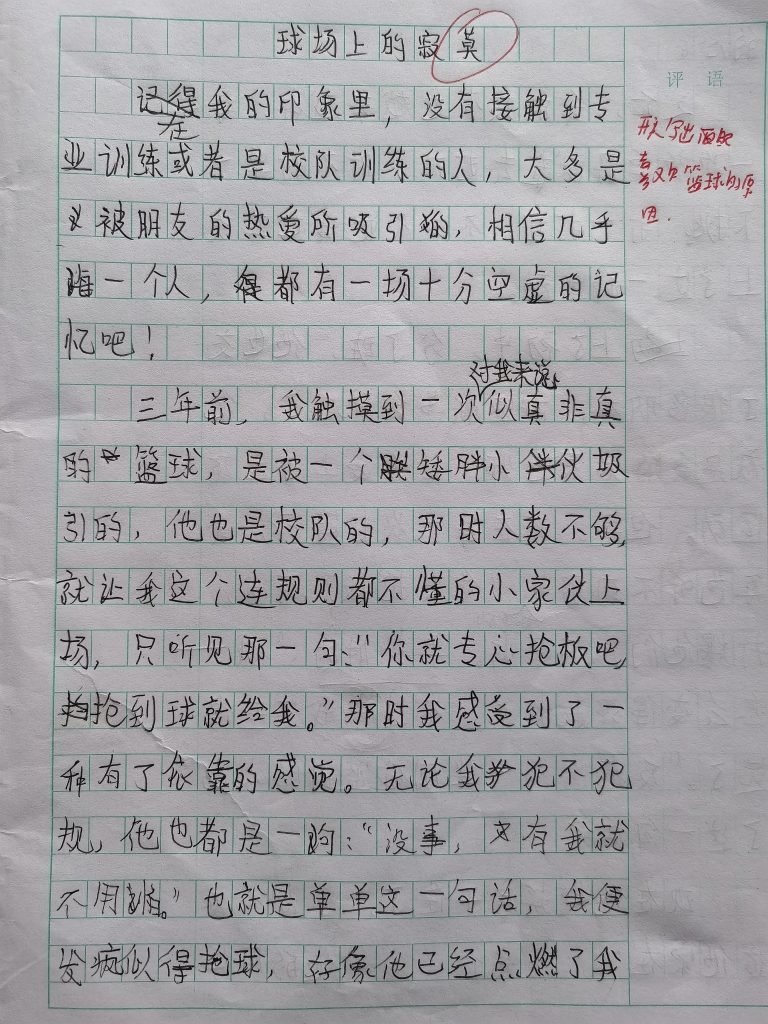 球场上的寂莫
评语
在我的印象里，没有接触到专
业训练或者是校队训练的人，大多是
被朋友的热爱所吸引的，相信几乎
每一个人，都有一场十分空虚的记
忆吧！
对我来说
三年前，我触摸到一次似真非真
的篮球，是被一个矮胖小伙吸
引的，他也是校队的，那时人数不够，
就让我这个连规则都不懂的小家伙上
场，只听见那一句：“你就专心抢板吧，
抢到球就给我。”那时我感受到了一
种有了依靠的感觉。无论我犯不犯
规，他也都是一句：“没事，有我就
不用怕。”也就是单单这一句话，我便
发疯似得抢球，好像他已经点燃了我
喜欢篮球的原
因.